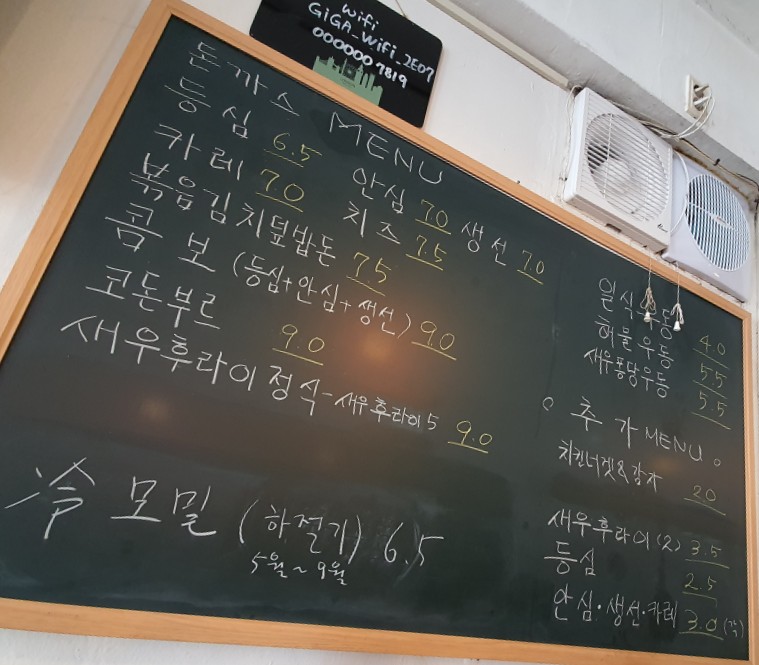 Wifi
GiGA_Wifi_2E07
0000007819
돈까스 MENU
등심 6.5 안심 7.0 생선 7.0
카레 7.0 치즈 7.5
볶음김치덮밥돈 7.5
콤보 (등심+안심+생선) 9.0
코돈부르 9.0
새우후라이정식-새우후라이5 9.0
冷모밀 (하절기) 6.5
5월~9월
일식우동 4.0
해물우동 5.5
새우퐁당우동 5.5
추가MENU
치킨너겟&감자 2.0
새우후라이(2) 3.5
등심 2.5
안심·생선·카레 3.0(각)